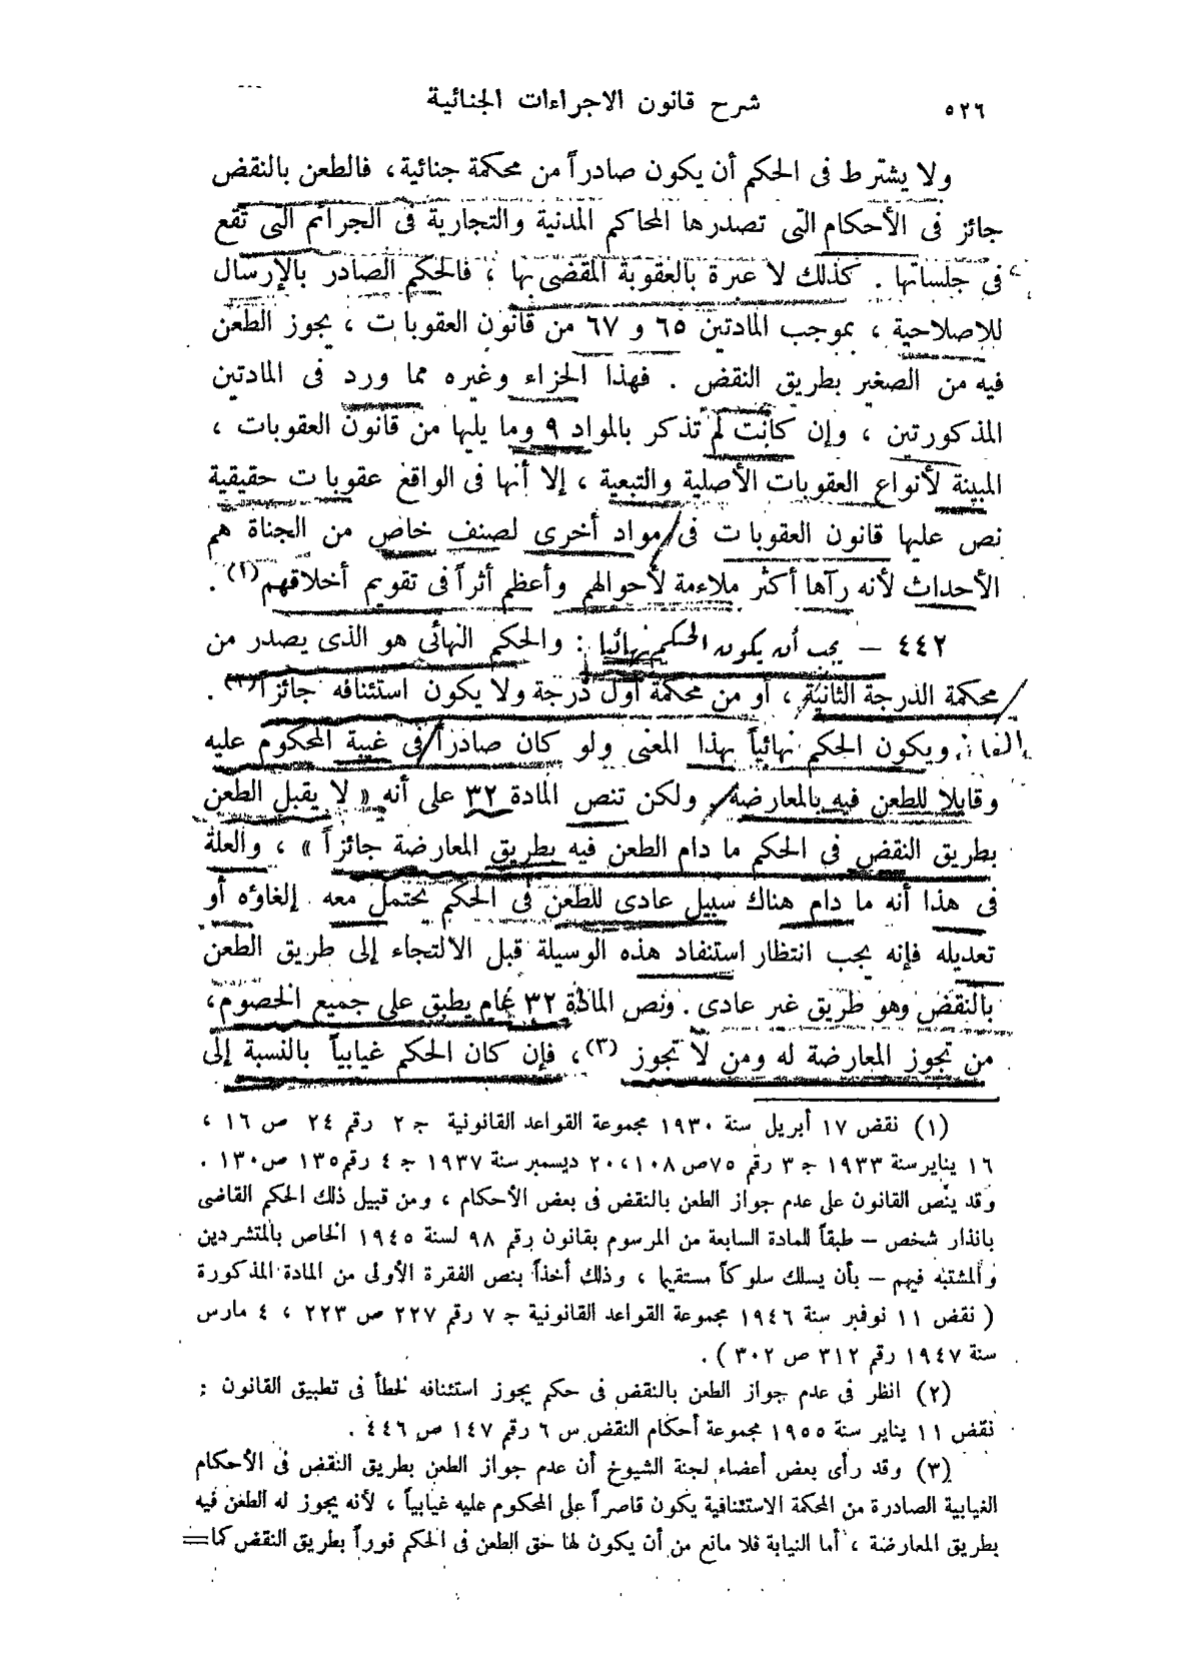 ٥٢٦
شرح قانون الاجراءات الجنائية
ولا يشترط فى الحكم أن يكون صادراً من محكمة جنائية ، فالطعن بالنقض
جائز فى الأحكام التى تصدرها المحاكم المدنية والتجارية فى الجرائم التى تقع
فى جلساتها . كذلك لا عبرة بالعقوبة المقضى بها ، فالحكم الصادر بالإرسال
للإصلاحية ، بموجب المادتين ٦٥ و ٦٧ من قانون العقوبات ، يجوز الطعن
فيه من الصغير بطريق النقض . فهذا الجزاء وغيره مما ورد فى المادتين
المذكورتين ، وإن كانت لم تذكر بالمواد ٩ وما يليها من قانون العقوبات ،
المبينة لأنواع العقوبات الأصلية والتبعية ، إلا أنها فى الواقع عقوبات حقيقية
نص عليها قانون العقوبات فى مواد أخرى لصنف خاص من الجناة هم
الأحداث لأنه رآها أكثر ملاءمة لأحوالهم وأعظم أثراً فى تقويم أخلاقهم (١) .
٤٤٢ — يجب أن يكون الحكم نهائيا : والحكم النهائى هو الذى يصدر من
محكمة الدرجة الثانية ، أو من محكمة أول درجة ولا يكون استئنافه جائزاً (٢) .
ويكون الحكم نهائياً بهذا المعنى ولو كان صادراً فى غيبة المحكوم عليه
وقابلا للطعن فيه بالمعارضة ، ولكن تنص المادة ٣٢ على أنه « لا يقبل الطعن
بطريق النقض فى الحكم ما دام الطعن فيه بطريق المعارضة جائزاً » ، والعلة
فى هذا أنه ما دام هناك سبيل عادى للطعن فى الحكم يحتمل معه إلغاؤه أو
تعديله فإنه يجب انتظار استنفاد هذه الوسيلة قبل الالتجاء إلى طريق الطعن
بالنقض وهو طريق غير عادى . ونص المادة ٣٢ عام يطبق على جميع الخصوم ،
من تجوز المعارضة له ومن لا تجوز (٣) ، فإن كان الحكم غيابياً بالنسبة إلى
(١) نقض ١٧ أبريل سنة ١٩٣٠ مجموعة القواعد القانونية جـ ٢ رقم ٢٤ ص ١٦ ،
١٦ يناير سنة ١٩٣٣ جـ ٣ رقم ٧٥ ص ١٠٨ ، ٢٠ ديسمبر سنة ١٩٣٧ جـ ٤ رقم ١٣٥ ص ١٣٠ .
وقد ينص القانون على عدم جواز الطعن بالنقض فى بعض الأحكام ، ومن قبيل ذلك الحكم القاضى
بانذار شخص — طبقاً للمادة السابعة من المرسوم بقانون رقم ٩٨ لسنة ١٩٤٥ الخاص بالمتشردين
والمشتبه فيهم — بأن يسلك سلوكاً مستقيما ، وذلك أخذاً بنص الفقرة الأولى من المادة المذكورة
( نقض ١١ نوفمبر سنة ١٩٤٦ مجموعة القواعد القانونية جـ ٧ رقم ٢٢٧ ص ٢٢٣ ، ٤ مارس
سنة ١٩٤٧ رقم ٣١٢ ص ٣٠٢ ) .
(٢) انظر فى عدم جواز الطعن بالنقض فى حكم يجوز استئنافه لخطأ فى تطبيق القانون :
نقض ١١ يناير سنة ١٩٥٥ مجموعة أحكام النقض س ٦ رقم ١٤٧ ص ٤٤٦ .
(٣) وقد رأى بعض أعضاء لجنة الشيوخ أن عدم جواز الطعن بطريق النقض فى الأحكام
الغيابية الصادرة من المحكمة الاستئنافية يكون قاصراً على المحكوم عليه غيابياً ، لأنه يجوز له الطعن فيه
بطريق المعارضة ، أما النيابة فلا مانع من أن يكون لها حق الطعن فى الحكم فوراً بطريق النقض كما =